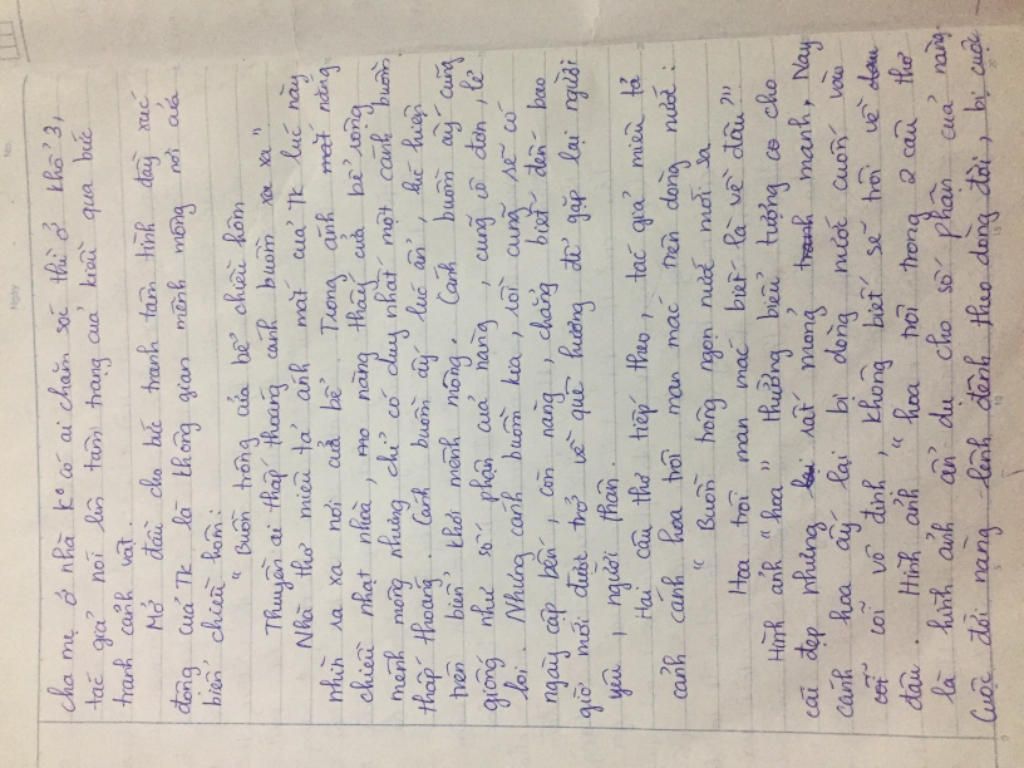 cha mẹ ở nhà k° có ai chăn sóc thì ở khổ 3,
tác giả nói lên tâm trạng của kiều qua bức
tranh cảnh vật.
Mở đầu cho bức tranh tâm tình đầy xúc
động của TK là không gian mênh mông nơi cửa
biển chiều hôm:
"Buồn trông cửa bể chiều hôm
Thuyền ai thấp thoáng cánh buồm xa xa"
Nhà thơ miêu tả ánh mắt của TK lúc này
nhìn ra xa nơi cửa bể. Trong ánh nắng
chiều nhạt nhòa, nàng thấy cửa bể rộng
mênh mông nhưng chỉ có duy nhất một cánh buồm
thấp thoáng. Cánh buồm ấy lúc ẩn, lúc hiện
trên biển khơi mênh mông. Cánh buồm ấy cũng
giống như số phận của nàng, cũng cô đơn, lẻ
loi. Nhưng cánh buồm kia, rồi cũng sẽ có
ngày cập bến, còn nàng, chẳng biết đến bao
giờ mới được trở về quê hương để gặp lại người
yêu, người thân.
Hai câu thơ tiếp theo, tác giả miêu tả
cảnh cánh hoa trôi man mác trên dòng nước:
"Buồn trông ngọn nước mới sa
Hoa trôi man mác biết là về đâu?"
Hình ảnh "hoa" thường biểu tượng cho
cái đẹp nhưng rất mỏng manh, Nay
cánh hoa ấy lại bị dòng nước cuốn vào
cõi vô định, không biết sẽ trôi về
đâu. Hình ảnh "hoa trôi trong 2 câu thơ
là hình ảnh ẩn dụ cho số phận của nàng.
Cuộc đời nàng lênh đênh theo dòng đời, bị cuộc
No.
Ngày